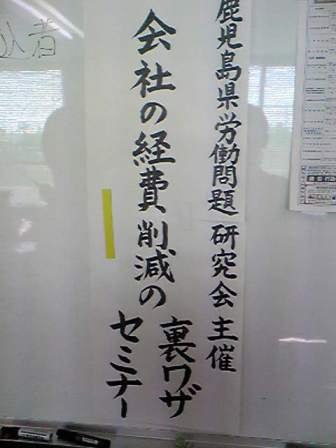 鹿児島県労働問題研究会主催
会社の経費削減の
裏ワザ
セミナー